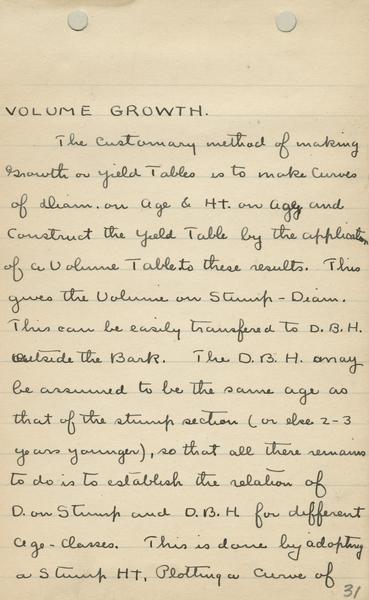 VOLUME GROWTH.
The Customary method of making
Growth or Yield Tables is to make Curves
of diam. on Age & Ht. on Age and
Construct the Yield Table by the application
of a Volume Table to these results. This
gives the Volume on Stump-Diam.
This can be easily transfered to D.B.H.
outside the Bark. The D.B.H. may
be assumed to be the same age as
that of the stump section (or else 2-3
years younger), so that all there remains
to do is to establish the relation of
D. on Stump and D.B.H. for different
age-classes. This is done by adopting
a Stump Ht, Plotting a Curve of
31